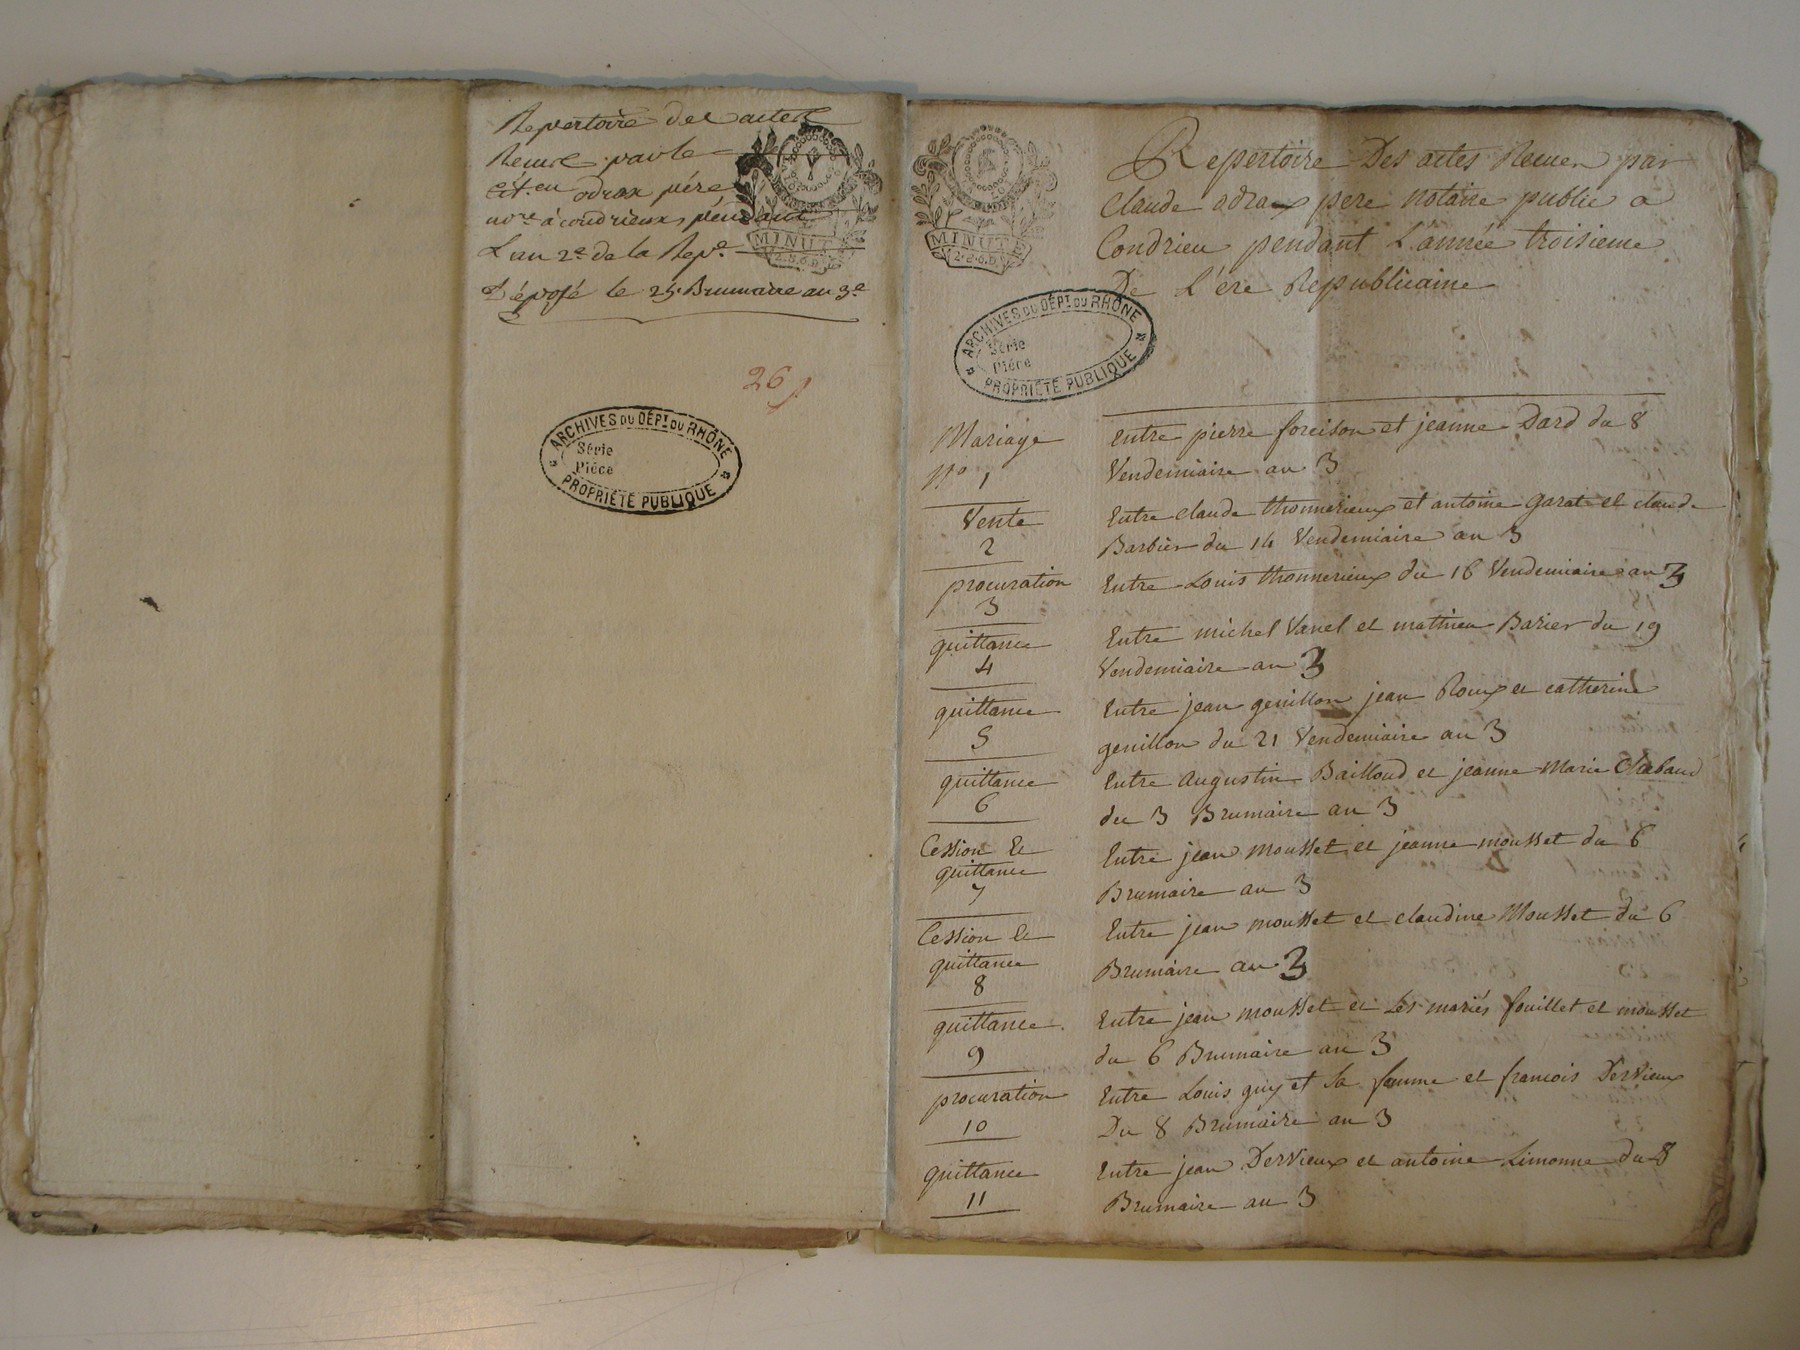 Repertoire des actes
Recus par le
cit.en odrax pére
no.re à condrieux, péndant
L'an 2.e de la Rep.e
Déposé le 25. Brumaire an 3.e
MINUTE
26
ARCHIVES DU DÉPT. DU RHÔNE
Série
Pièce
PROPRIÉTÉ PUBLIQUE
MINUTE
Repertoire Des actes Recues par
Claude odrax pere Notaire public a
Condrieu pendant L'année troisieme
De L'ére Republicaine
ARCHIVES DU DÉPT. DU RHÔNE
Série
Pièce
PROPRIÉTÉ PUBLIQUE
Mariage Entre pierre foreison et jeanne Dard du 8
N° 1 Vendemiaire an 3
Vente Entre claude thonnerieux et antoine garat et claude
2 Barbier du 14 Vendemiaire an 3
procuration Entre Louis thonnerieux du 16 Vendemiaire an 3
3
quittance Entre michel Vanel et mathieu Barier du 19
4 Vendemiaire an 3
quittance Entre jean genillon jean Roux et catherine
5 genillon du 21 Vendemiaire an 3
quittance Entre augustin Bailloud et jeanne Marie Chabaud
6 du 3 Brumaire an 3
Cession Et Entre jean mousset et jeanne mousset du 6
quittance
7 Brumaire an 3
Cession Et Entre jean mousset et claudine Mousset du 6
quittance Brumaire an 3
8
quittance Entre jean mousset et Les mariés fouillet et mousset
9 du 6 Brumaire an 3
procuration Entre Louis guy et sa femme et francois Dervieux
10 Du 8 Brumaire an 3
quittance Entre jean Dervieux et antoine Limonne du 8
11 Brumaire an 3